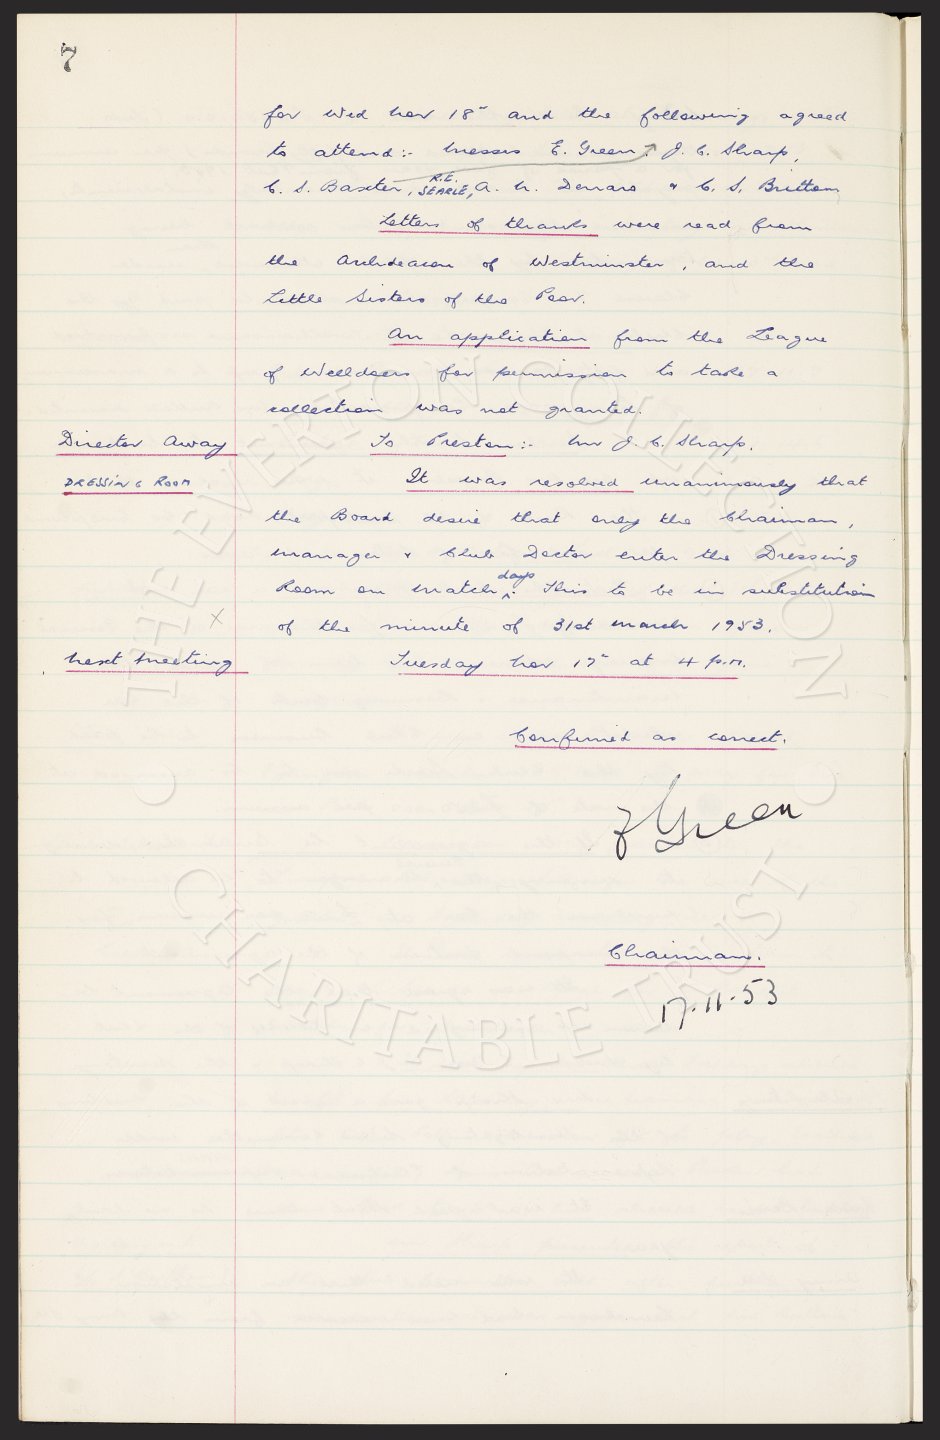 7
for Wed Nov 18" and the following agreed
to attend:- Messrs E. Green, J. C. Sharp,
C. S. Baxter, R.E. SEARLE, A. N. Denaro & C. S. Britton
Letters of thanks were read from
the Archdeacon of Westminster, and the
Little Sisters of the Poor.
An application from the League
of Welldoers for permission to take a
collection was not granted.
Director Away To Preston:- Mr J. C. Sharp.
DRESSING ROOM It was resolved unanimously that
the Board desire that only the Chairman,
Manager & Club Doctor enter the Dressing
Room on match days. This to be in substitution
of the minute of 31st March 1953.
Next Meeting Tuesday Nov 17" at 4 p.m.
Confirmed as correct.
E Green
Chairman.
17.11.53
THE EVERTON COLLECTION
CHARITABLE TRUST